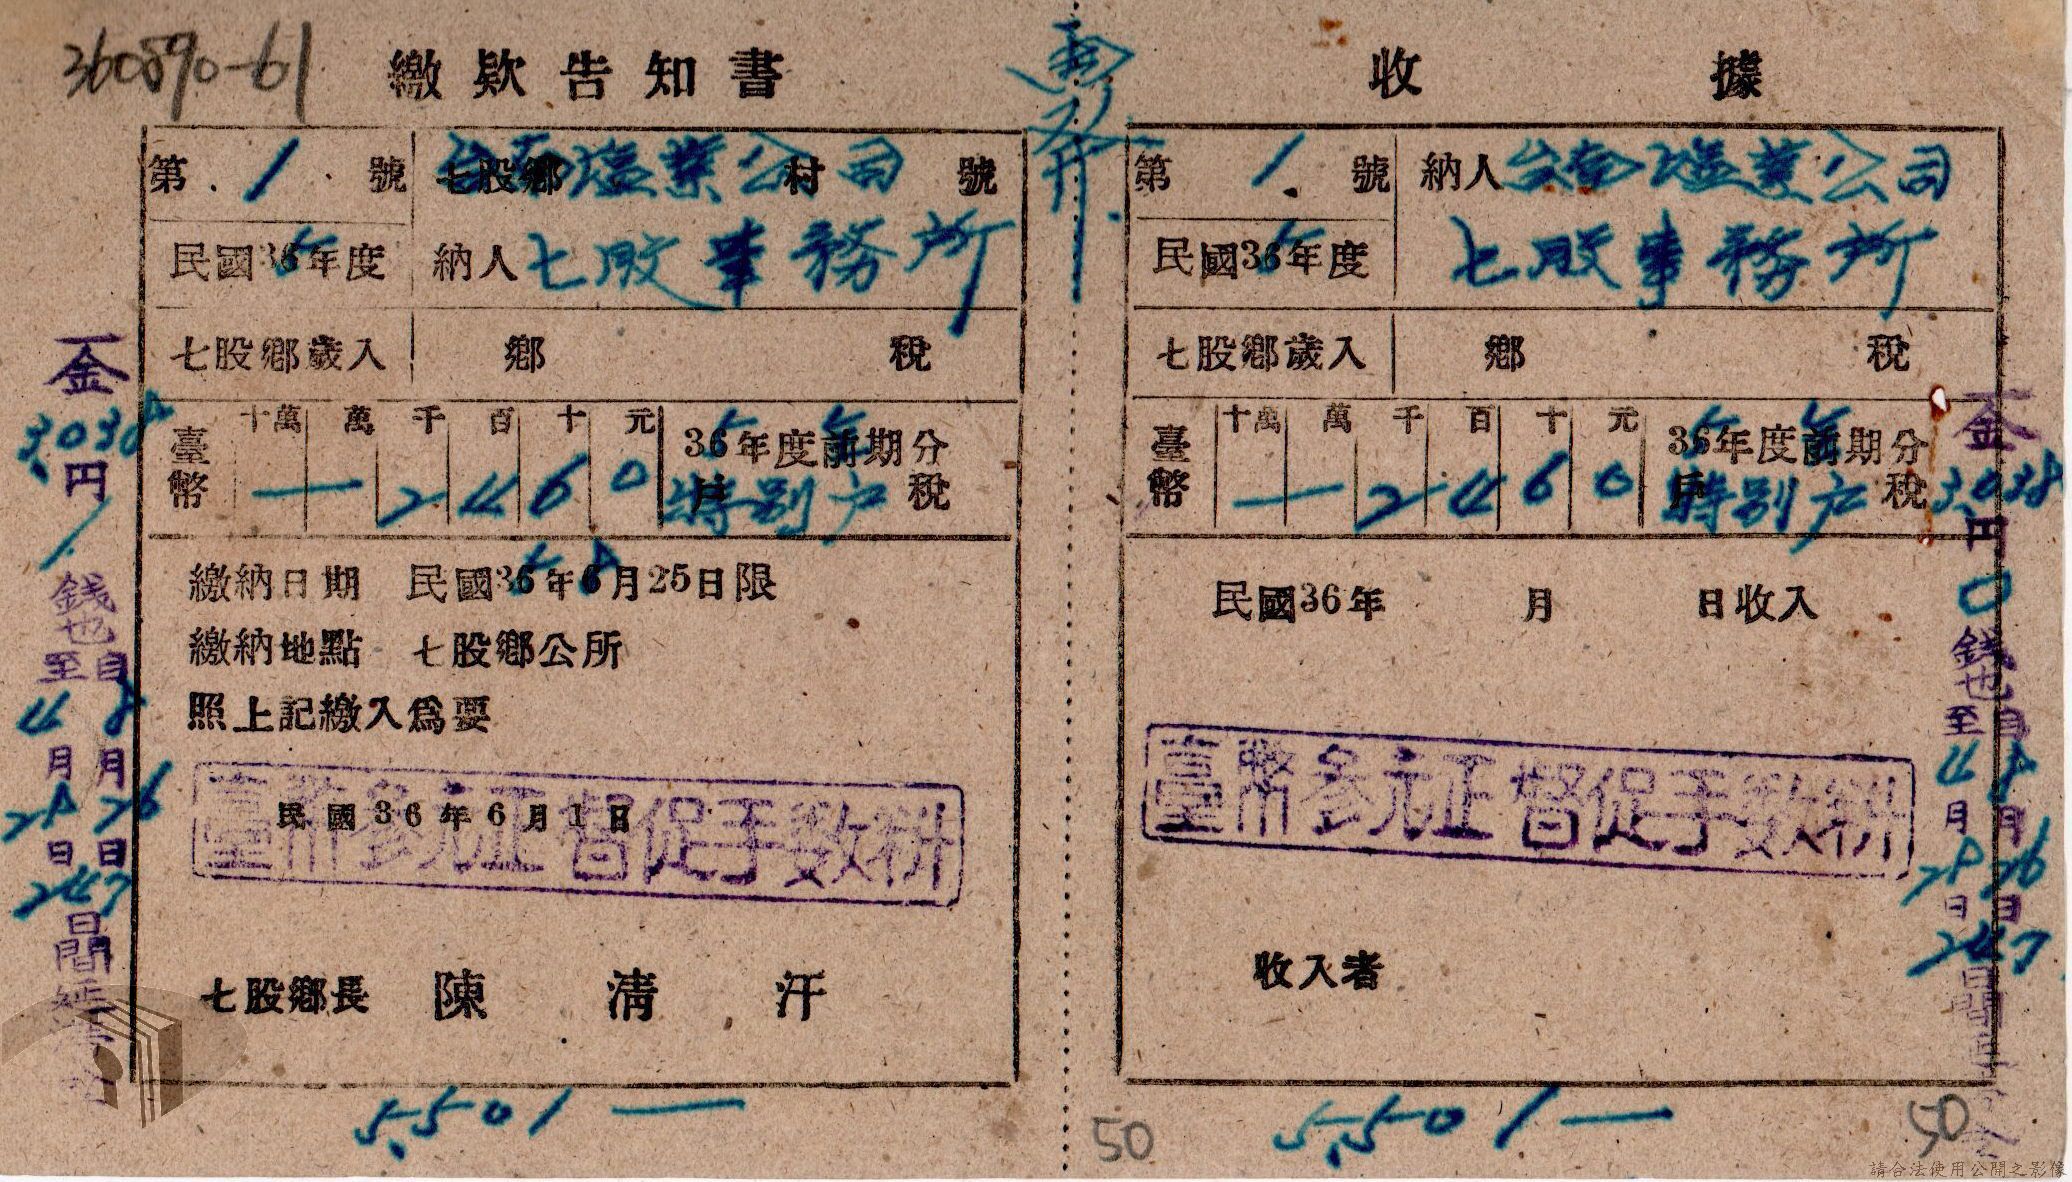 360890-61
繳款告知書
第 1 號 七股鄉 村 號
台南塩業公司
民國36年度 納人 七股事務所
5
七股鄉歲入 鄉 稅
臺幣 十萬 萬 千 百 十 元
一 2 4 6 0
36年度前期分
特別戶稅
繳納日期 民國36年6月25日限
繳納地點 七股鄉公所
照上記繳入為要
民國36年6月1日
臺幣参元正督促手数料
七股鄉長 陳清汗
5,501一
金
3,038
円
錢也
自 8月26日
至 4月28日
247
日間延滯
收據
第 1 號 納人 台南塩業公司
民國36年度 七股事務所
5
七股鄉歲入 鄉 稅
臺幣 十萬 萬 千 百 十 元
一 2 4 6 0
36年度前期分
特別戶稅
民國36年 月 日收入
臺幣参元正督促手数料
收入者
5,501一
50
50
金
3,038
円
0
錢也
自 8月26日
至 4月28日
247
日間
請合法使用公開之影像